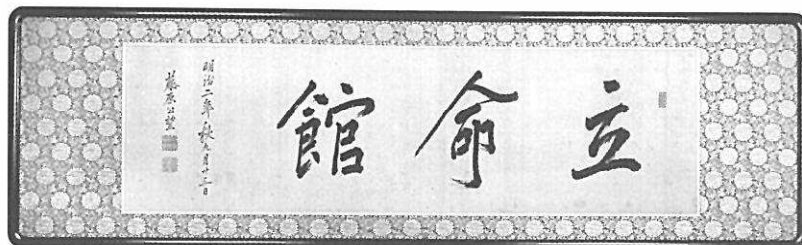 立命館
明治二年秋九月十三日
藤原公望